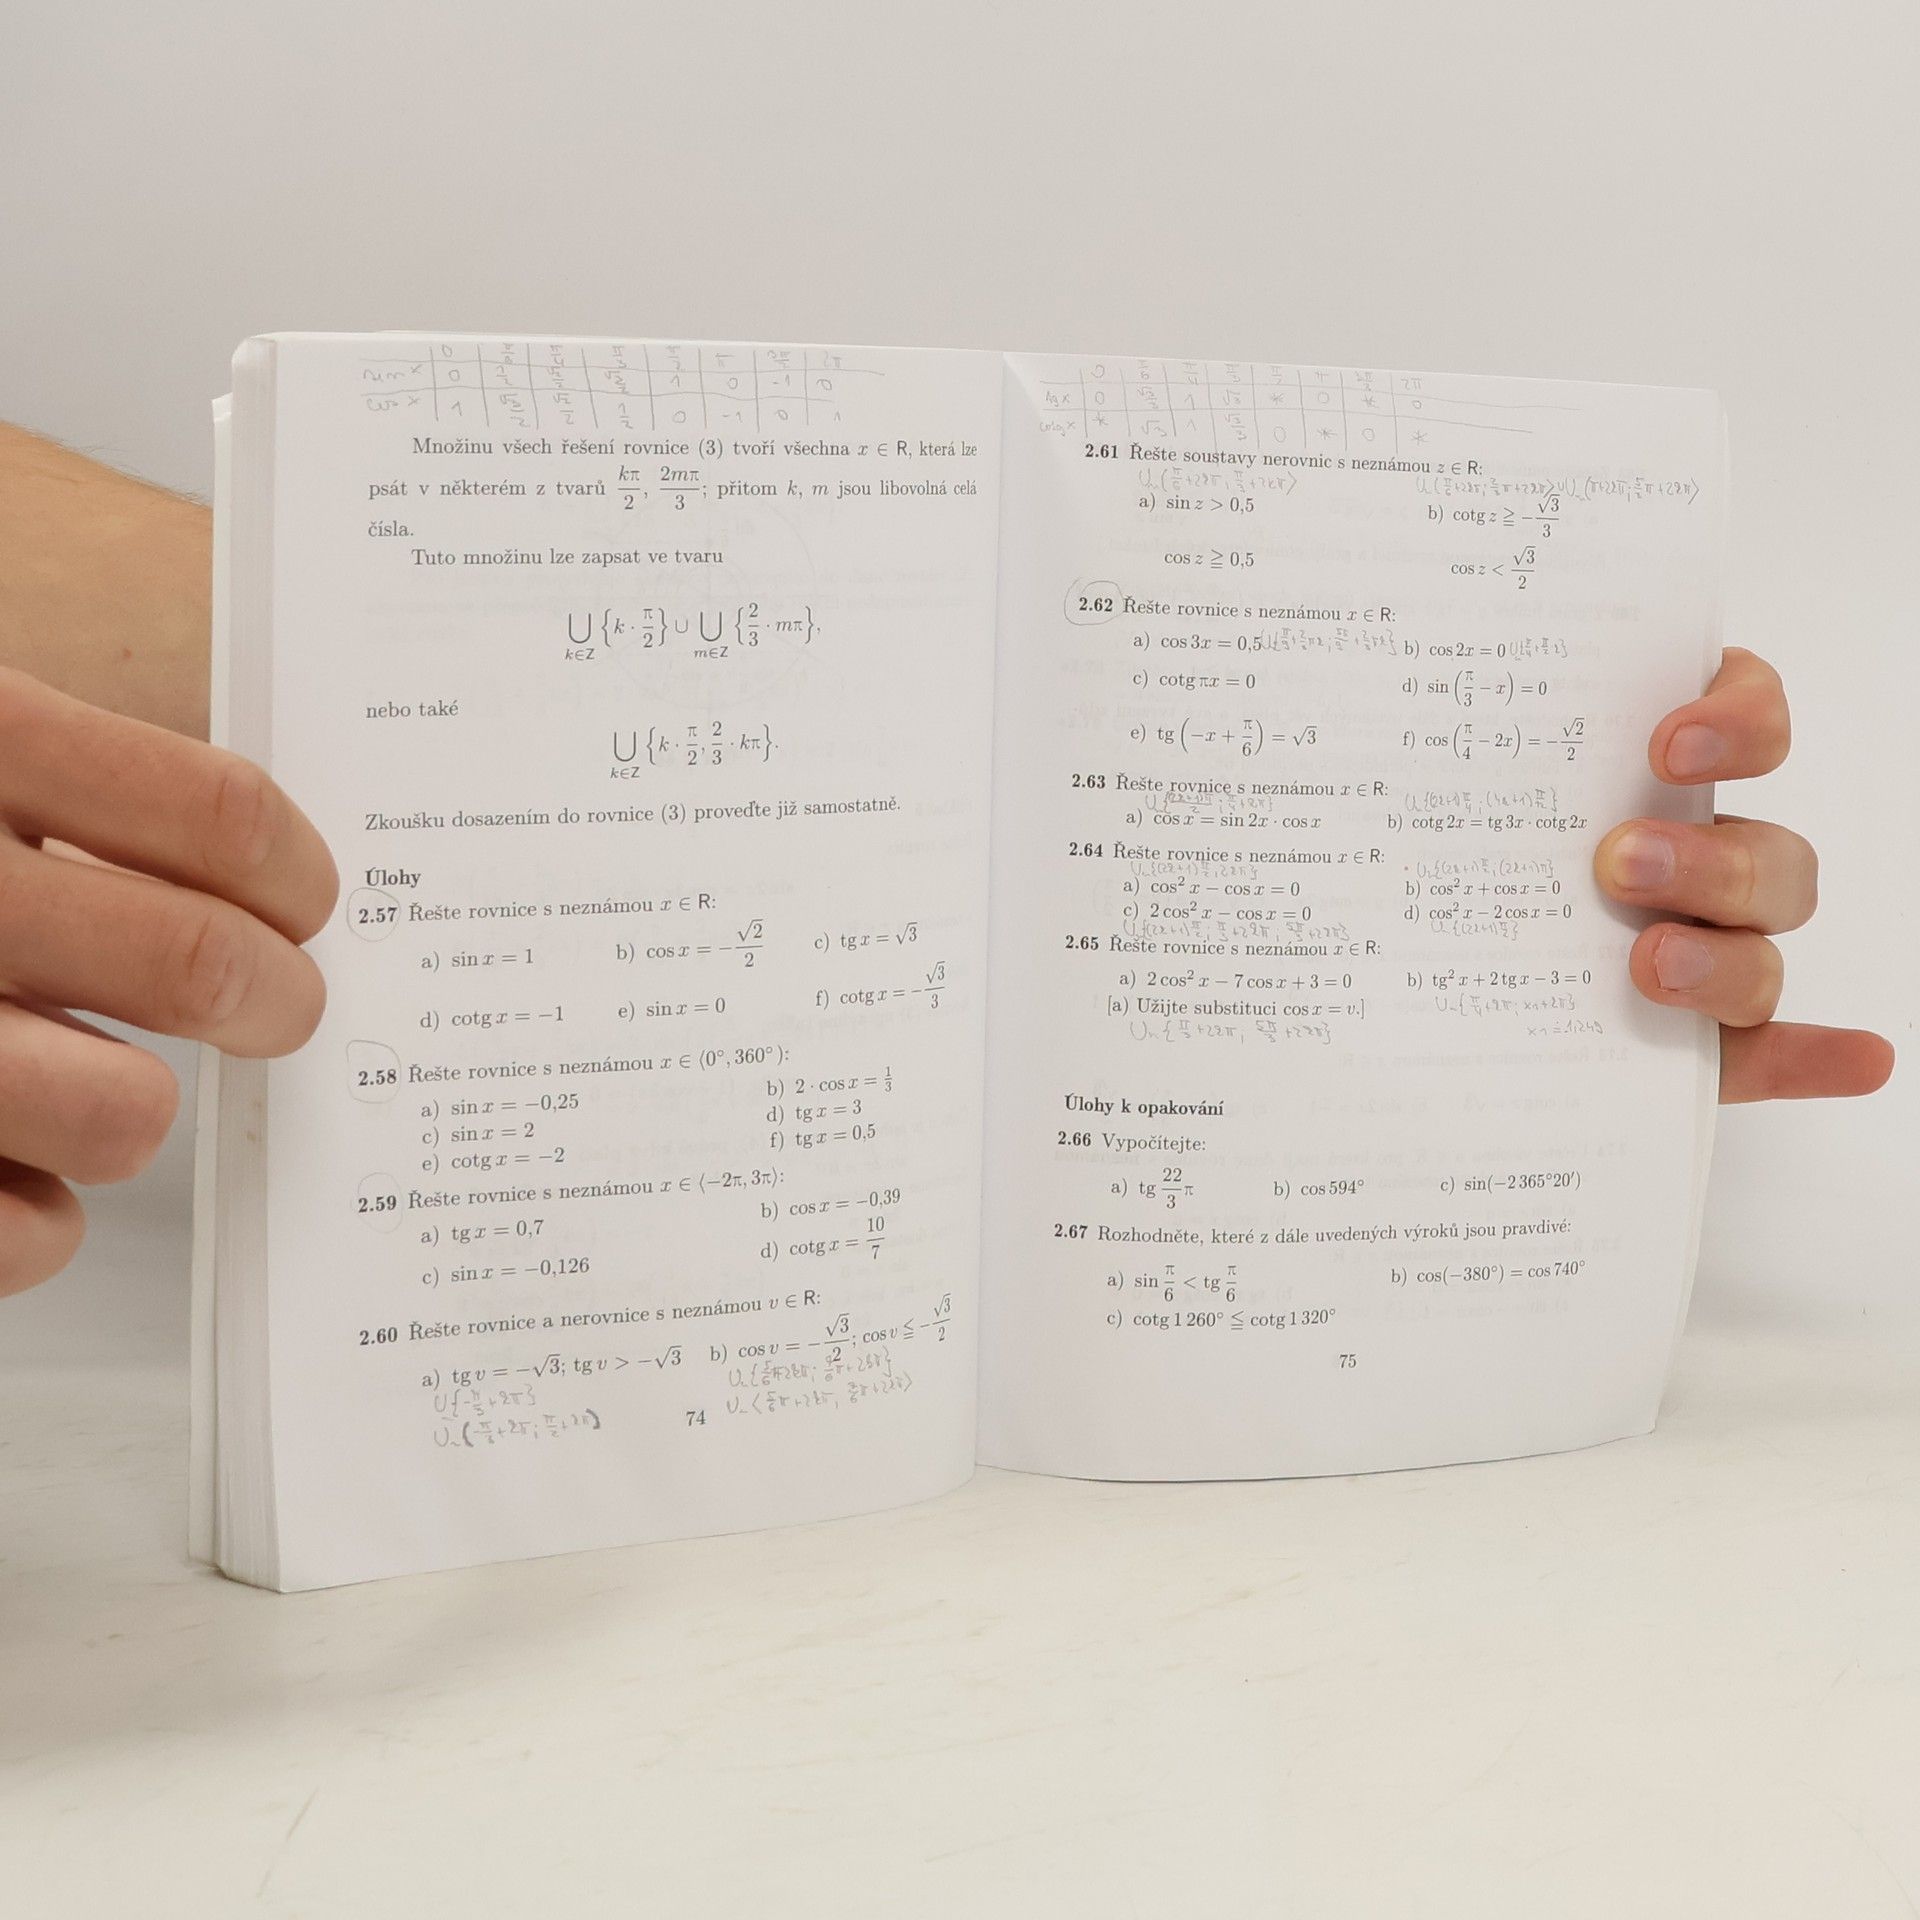 0 π/6 π/4 π/3 π/2 π 3π/2 2π
sin x 0 1/2 √2/2 √3/2 1 0 -1 0
cos x 1 √3/2 √2/2 1/2 0 -1 0 1
Množinu všech řešení rovnice (3) tvoří všechna x ∈ R, která lze
psát v některém z tvarů kπ/2, 2mπ/3; přitom k, m jsou libovolná celá
čísla.
Tuto množinu lze zapsat ve tvaru
⋃ k∈Z {k · π/2} ∪ ⋃ m∈Z {2/3 · mπ},
nebo také
⋃ k∈Z {k · π/2, 2/3 · kπ}.
Zkoušku dosazením do rovnice (3) proveďte již samostatně.
Úlohy
2.57 Řešte rovnice s neznámou x ∈ R:
a) sin x = 1 b) cos x = −√2/2 c) tg x = √3
d) cotg x = −1 e) sin x = 0 f) cotg x = −√3/3
2.58 Řešte rovnice s neznámou x ∈ ⟨0°, 360°):
a) sin x = −0,25 b) 2 · cos x = 1/3
c) sin x = 2 d) tg x = 3
e) cotg x = −2 f) tg x = 0,5
2.59 Řešte rovnice s neznámou x ∈ ⟨−2π, 3π⟩:
a) tg x = 0,7 b) cos x = −0,39
c) sin x = −0,126 d) cotg x = 10/7
2.60 Řešte rovnice a nerovnice s neznámou v ∈ R:
a) tg v = −√3; tg v > −√3 b) cos v = −√3/2; cos v ≦ −√3/2
74
0 π/6 π/4 π/3 π/2 π 3π/2 2π
tg x 0 √3/3 1 √3 * 0 * 0
cotg x * √3 1 √3/3 0 * 0 *
2.61 Řešte soustavy nerovnic s neznámou z ∈ R:
a) sin z > 0,5 b) cotg z ≧ −√3/3
cos z ≧ 0,5 cos z < √3/2
2.62 Řešte rovnice s neznámou x ∈ R:
a) cos 3x = 0,5 b) cos 2x = 0
c) cotg πx = 0 d) sin (π/3 − x) = 0
e) tg (−x + π/6) = √3 f) cos (π/4 − 2x) = −√2/2
2.63 Řešte rovnice s neznámou x ∈ R:
a) cos x = sin 2x · cos x b) cotg 2x = tg 3x · cotg 2x
2.64 Řešte rovnice s neznámou x ∈ R:
a) cos² x − cos x = 0 b) cos² x + cos x = 0
c) 2 cos² x − cos x = 0 d) cos² x − 2 cos x = 0
2.65 Řešte rovnice s neznámou x ∈ R:
a) 2 cos² x − 7 cos x + 3 = 0 b) tg² x + 2 tg x − 3 = 0
[a) Užijte substituci cos x = v.]
Úlohy k opakování
2.66 Vypočítejte:
a) tg 22/3 π b) cos 594° c) sin(−2 365°20′)
2.67 Rozhodněte, které z dále uvedených výroků jsou pravdivé:
a) sin π/6 < tg π/6 b) cos(−380°) = cos 740°
c) cotg 1 260° ≦ cotg 1 320°
75